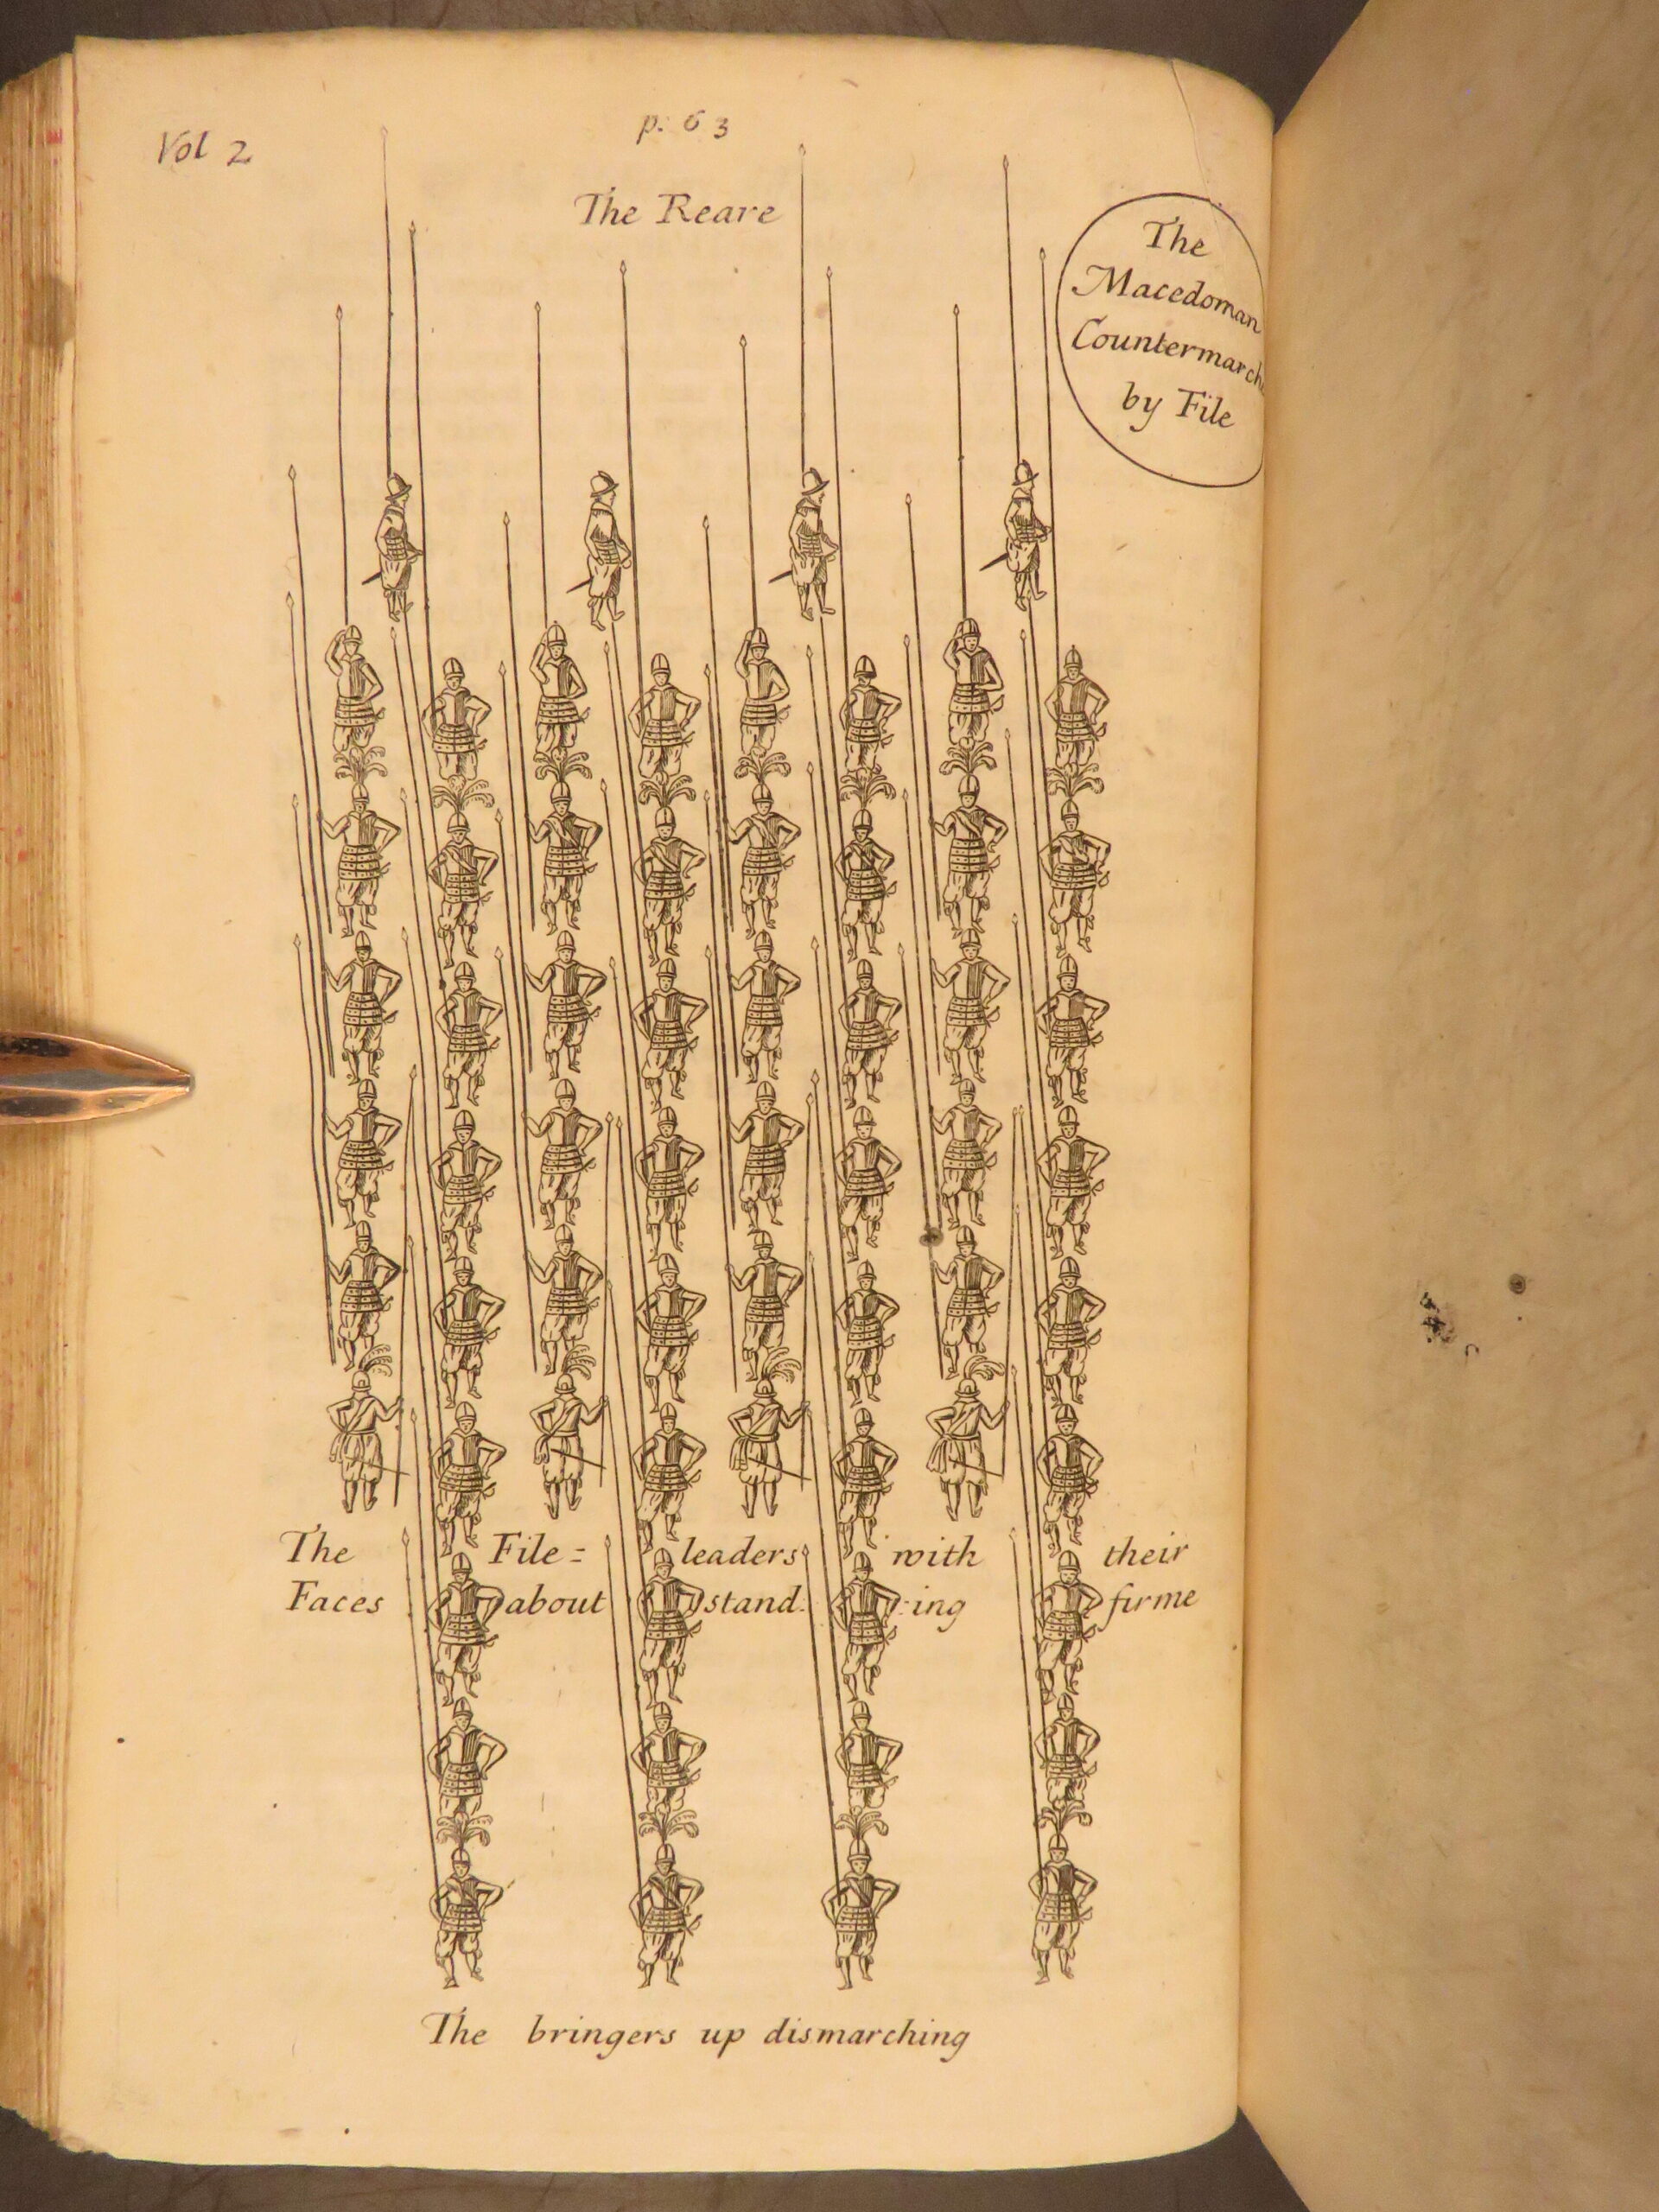 Vol 2
p. 63
The Reare
The
Macedonian
Countermarch
by File
The File= leaders with their
Faces about stand: :ing firme
The bringers up dismarching